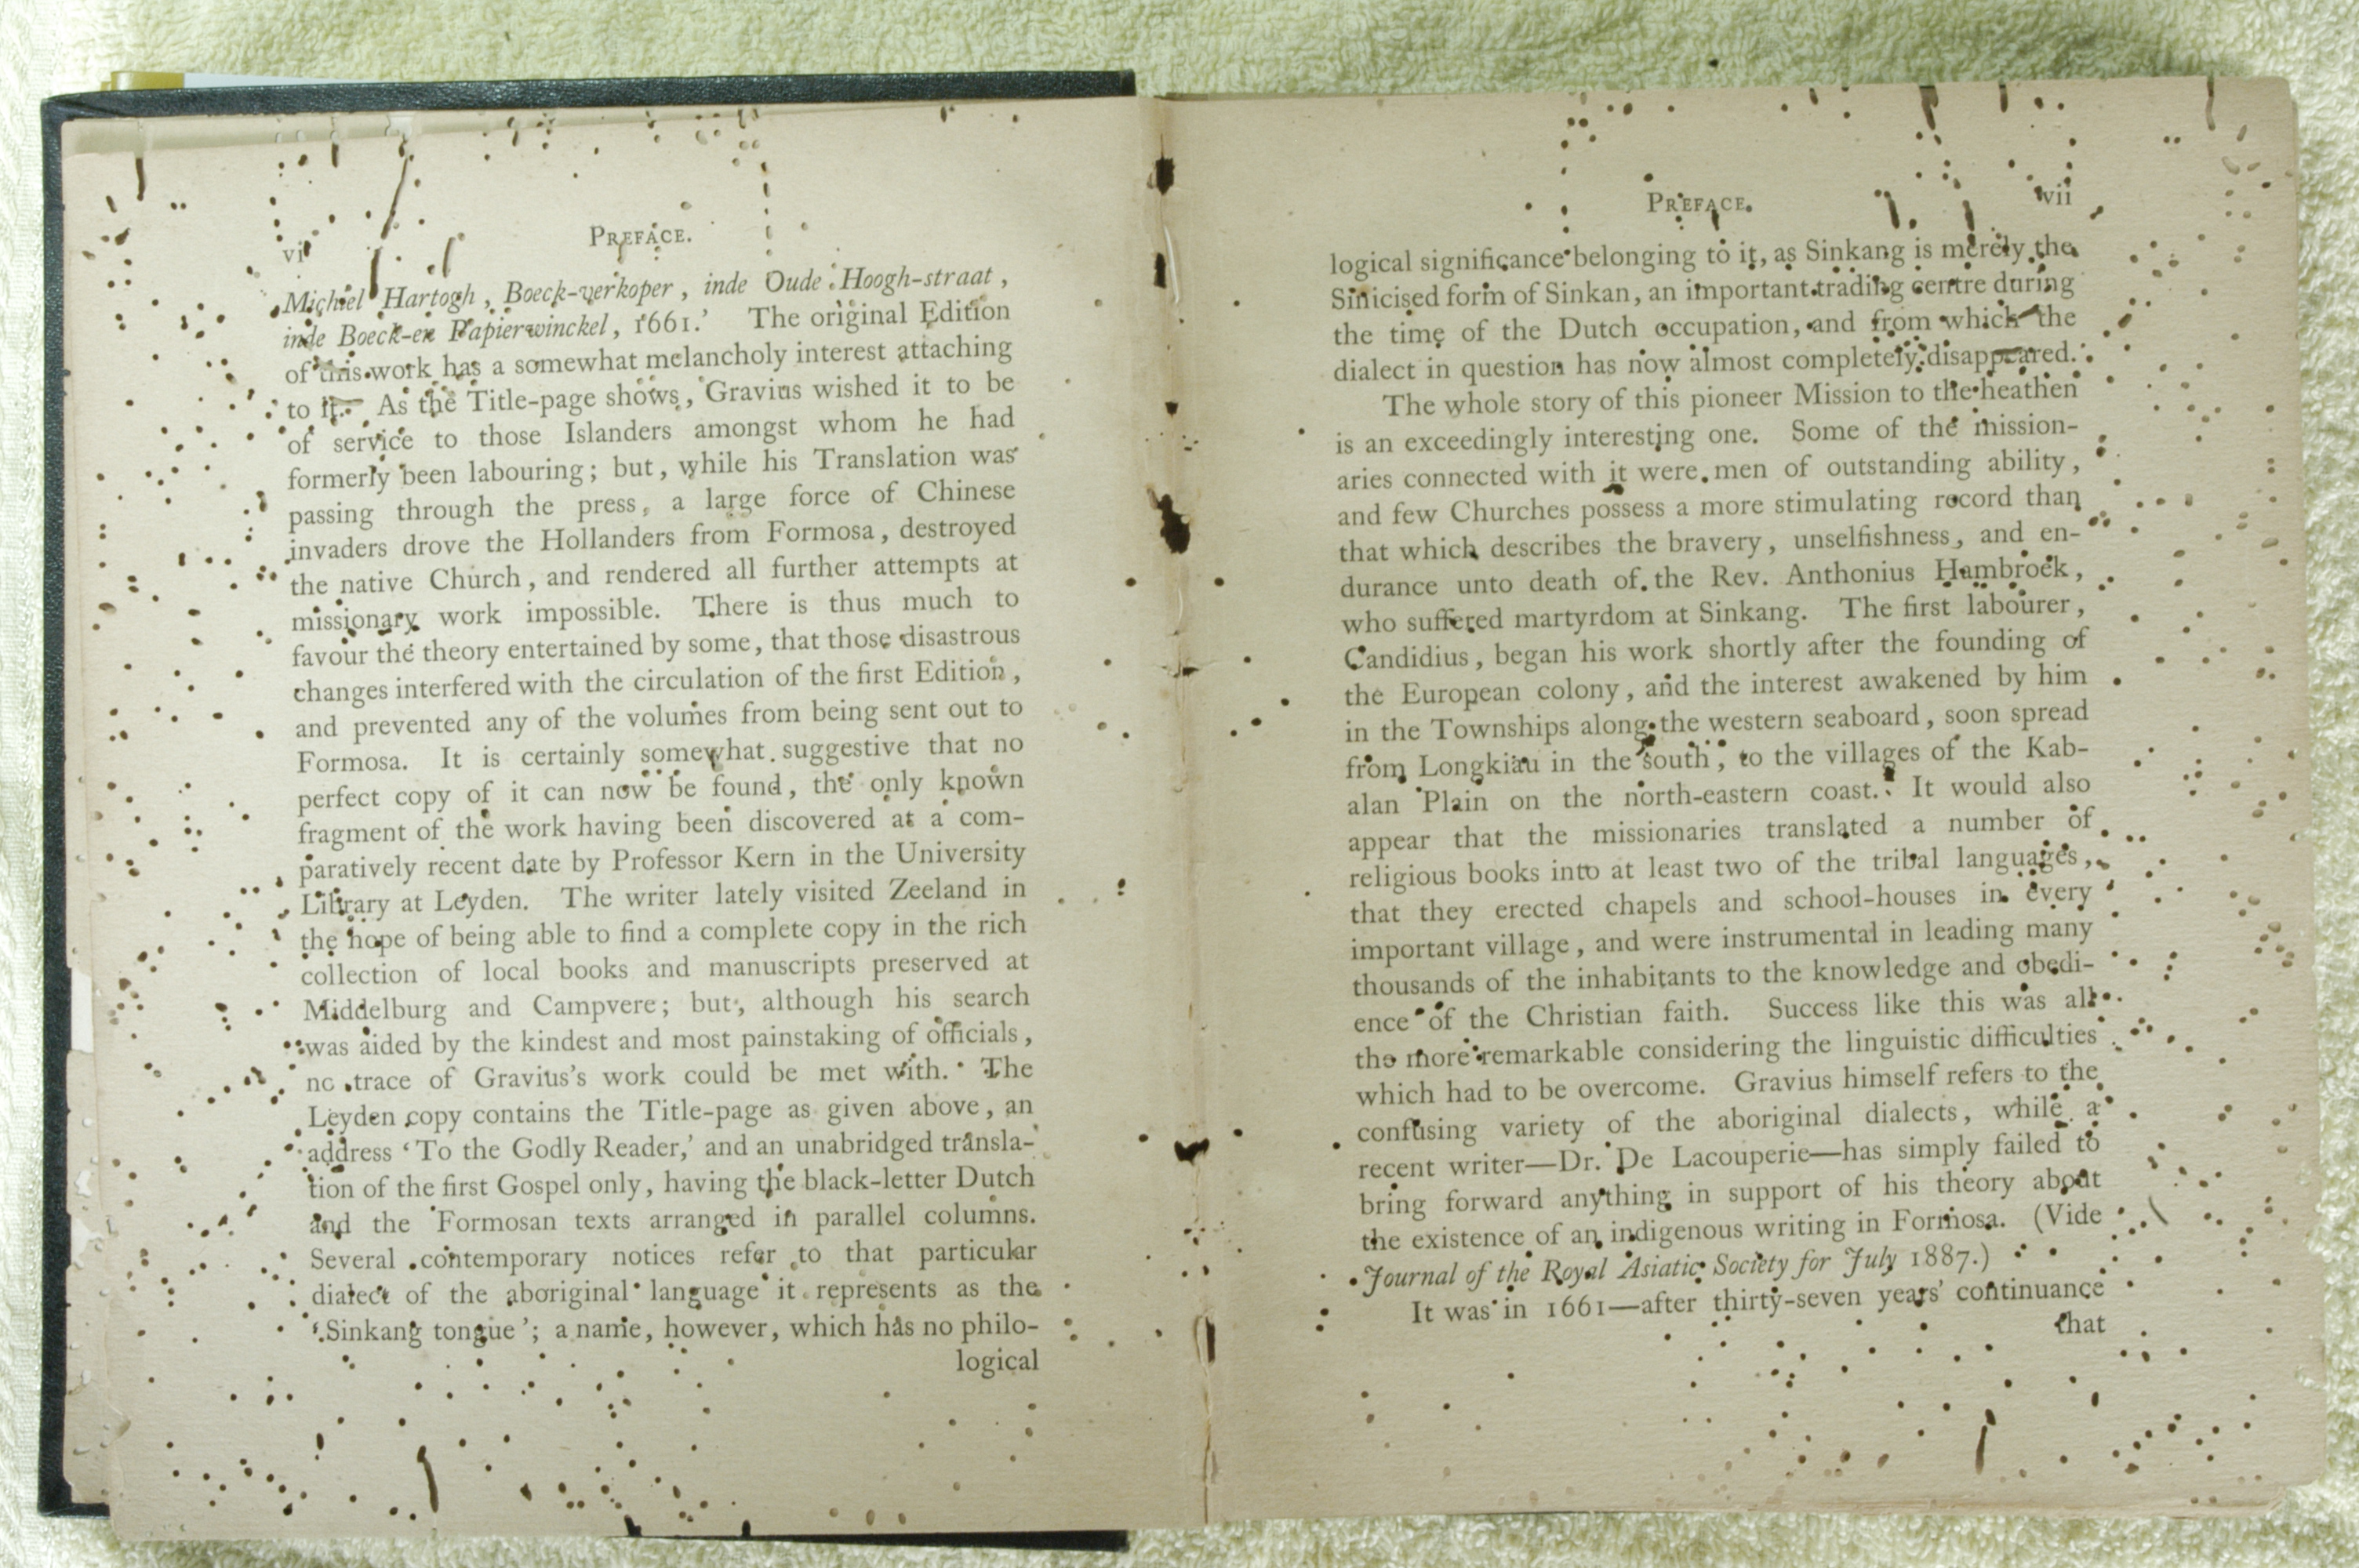 vi
PREFACE.
Michiel Hartogh, Boeck-verkoper, inde Oude Hoogh-straat,
inde Boeck-en Papierwinckel, 1661.' The original Edition
of this work has a somewhat melancholy interest attaching
to it. As the Title-page shows, Gravius wished it to be
of service to those Islanders amongst whom he had
formerly been labouring; but, while his Translation was
passing through the press, a large force of Chinese
invaders drove the Hollanders from Formosa, destroyed
the native Church, and rendered all further attempts at
missionary work impossible. There is thus much to
favour the theory entertained by some, that those disastrous
changes interfered with the circulation of the first Edition,
and prevented any of the volumes from being sent out to
Formosa. It is certainly somewhat suggestive that no
perfect copy of it can now be found, the only known
fragment of the work having been discovered at a com-
paratively recent date by Professor Kern in the University
Library at Leyden. The writer lately visited Zeeland in
the hope of being able to find a complete copy in the rich
collection of local books and manuscripts preserved at
Middelburg and Campvere; but, although his search
was aided by the kindest and most painstaking of officials,
no trace of Gravius's work could be met with. The
Leyden copy contains the Title-page as given above, an
address 'To the Godly Reader,' and an unabridged transla-
tion of the first Gospel only, having the black-letter Dutch
and the Formosan texts arranged in parallel columns.
Several contemporary notices refer to that particular
dialect of the aboriginal language it represents as the
'Sinkang tongue'; a name, however, which has no philo-
logical
PREFACE.
vii
logical significance belonging to it, as Sinkang is merely the
Sinicised form of Sinkan, an important trading centre during
the time of the Dutch occupation, and from which the
dialect in question has now almost completely disappeared.
The whole story of this pioneer Mission to the heathen
is an exceedingly interesting one. Some of the mission-
aries connected with it were men of outstanding ability,
and few Churches possess a more stimulating record than
that which describes the bravery, unselfishness, and en-
durance unto death of the Rev. Anthonius Hambroek,
who suffered martyrdom at Sinkang. The first labourer,
Candidius, began his work shortly after the founding of
the European colony, and the interest awakened by him
in the Townships along the western seaboard, soon spread
from Longkiau in the south, to the villages of the Kab-
alan Plain on the north-eastern coast. It would also
appear that the missionaries translated a number of
religious books into at least two of the tribal languages,
that they erected chapels and school-houses in every
important village, and were instrumental in leading many
thousands of the inhabitants to the knowledge and obedi-
ence of the Christian faith. Success like this was all
the more remarkable considering the linguistic difficulties
which had to be overcome. Gravius himself refers to the
confusing variety of the aboriginal dialects, while a
recent writer—Dr. De Lacouperie—has simply failed to
bring forward anything in support of his theory about
the existence of an indigenous writing in Formosa. (Vide
Journal of the Royal Asiatic Society for July 1887.)
It was in 1661—after thirty-seven years' continuance
that